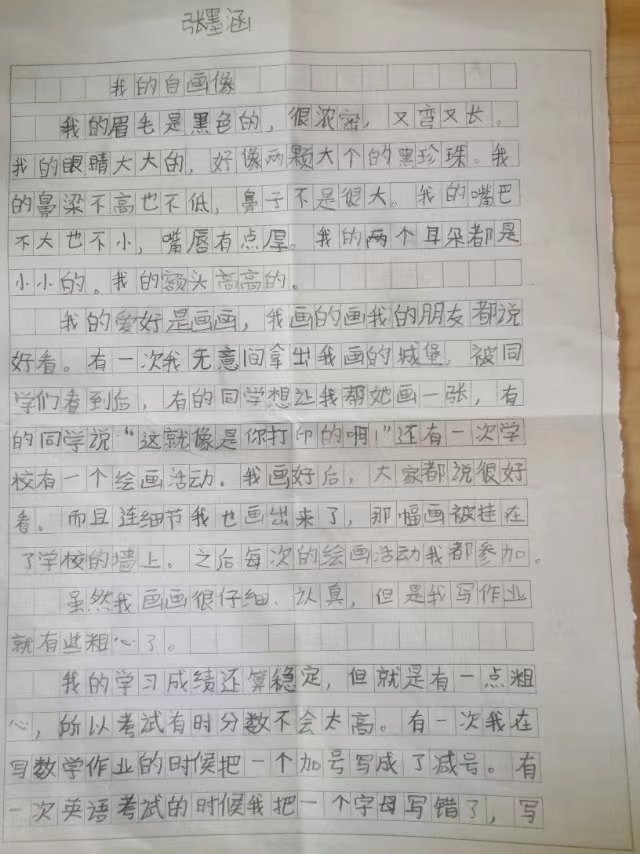 张墨涵
我的自画像
我的眉毛是黑色的，很浓密，又弯又长。
我的眼睛大大的，好像两颗大个的黑珍珠。我
的鼻梁不高也不低，鼻子不是很大。我的嘴巴
不大也不小，嘴唇有点厚。我的两个耳朵都是
小小的。我的额头高高的。
我的爱好是画画，我画的画我的朋友都说
好看。有一次我无意间拿出我画的城堡，被同
学们看到后，有的同学想让我帮她画一张，有
的同学说“这就像是你打印的啊！”还有一次学
校有一个绘画活动。我画好后，大家都说很好
看。而且连细节我也画出来了，那幅画被挂在
了学校的墙上。之后每次的绘画活动我都参加。
虽然我画画很仔细、认真，但是我写作业
就有些粗心了。
我的学习成绩还算稳定，但就是有一点粗
心，所以考试有时分数不会太高。有一次我在
写数学作业的时候把一个加号写成了减号。有
一次英语考试的时候我把一个字母写错了，写